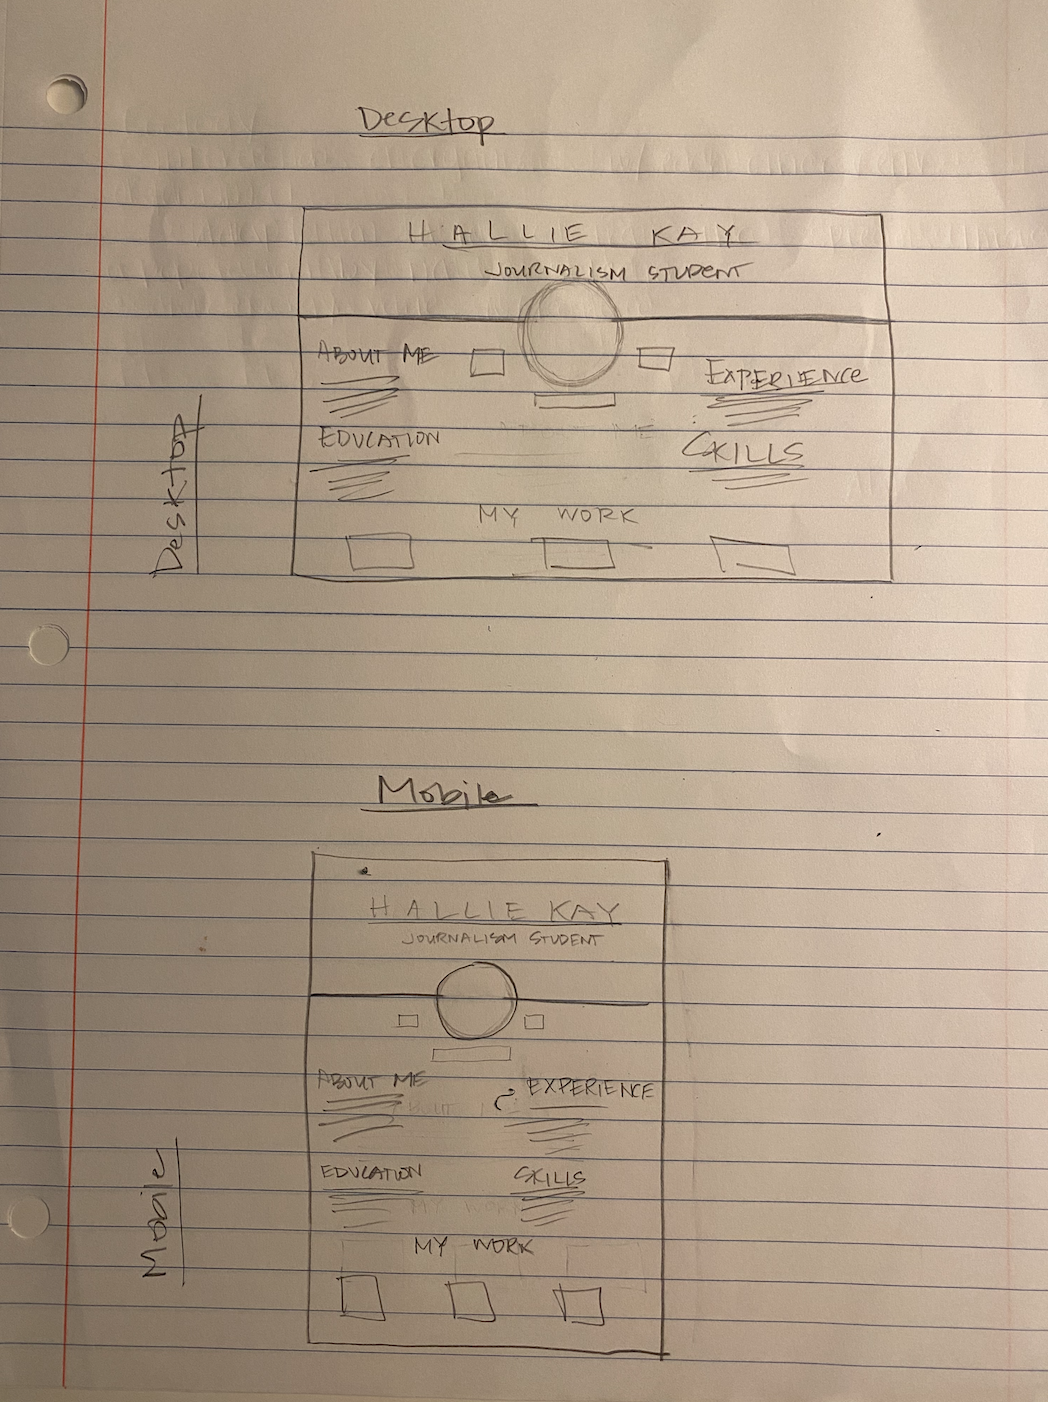 Desktop
HALLIE KAY
JOURNALISM STUDENT
ABOUT ME
EXPERIENCE
EDUCATION
SKILLS
MY WORK
Desktop
Mobile
HALLIE KAY
JOURNALISM STUDENT
ABOUT ME
EXPERIENCE
EDUCATION
SKILLS
MY WORK
Mobile